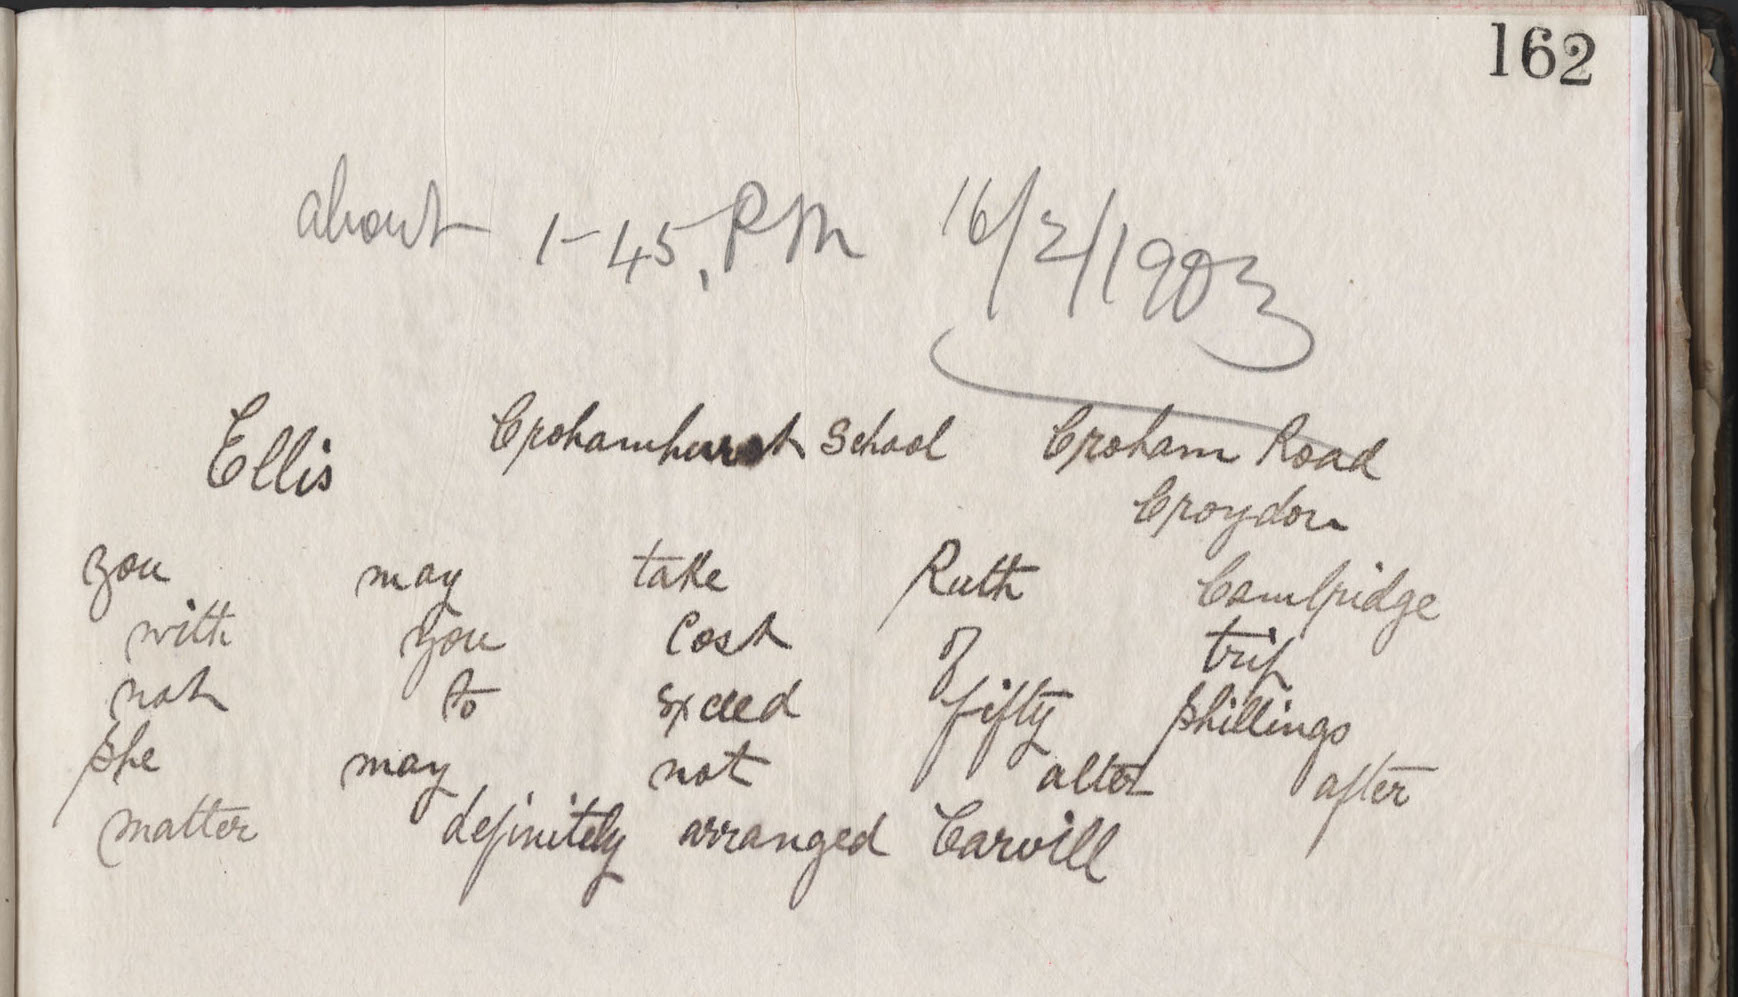 162
about 1-45. PM 16/2/1903
Ellis Crohamhurst School Croham Road
Croydon
you may take Ruth Cambridge
with you cost of trip
not to exceed fifty shillings
she may not alter after
matter definitely arranged Carvill